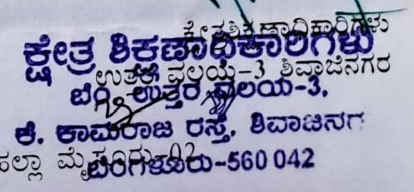 ಕ್ಷೇತ್ರ ಶಿಕ್ಷಣಾಧಿಕಾರಿಗಳು
ಕ್ಷೇತ್ರ ಶಿಕ್ಷಣಾಧಿಕಾರಿಗಳು
ಉತ್ತರ ವಲಯ-3 ಶಿವಾಜಿನಗರ
ಬೆಂ. ಉತ್ತರ ವಲಯ-3,
ಕೆ. ಕಾಮರಾಜ ರಸ್ತೆ, ಶಿವಾಜಿನಗ
ಬೆಂಗಳೂರು-560 042